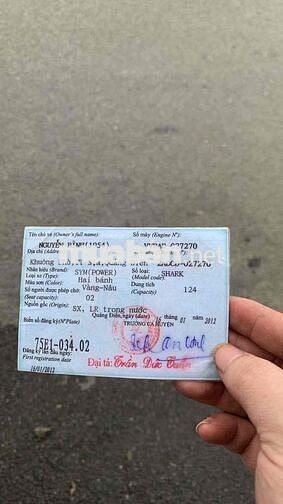 Tên chủ xe (Owner's full name) Số máy (Engine Nº)
NGUYỄN BÌNH(1954) 027270
Địa chỉ (Address)
Khuông 027270
Nhãn hiệu (Brand): SYM(POWER) Số loại: SHARK
Loại xe (Type): Hai bánh (Model code):
Màu sơn (Color): Vàng-Nâu Dung tích 124
Số người được phép chở: 02 (Capacity)
(Seat capacity)
Nguồn gốc (Origin): SX, LR trong nước
Quảng Điền, ngày (date) 16 01 2012
Biển số đăng ký (Nº Plate) TRƯỞNG CA HUYỆN
75E1-034.02
Đăng ký lần đầu ngày:
First registration date
16/01/2012 Đại tá: Trần Đức
muaban.net